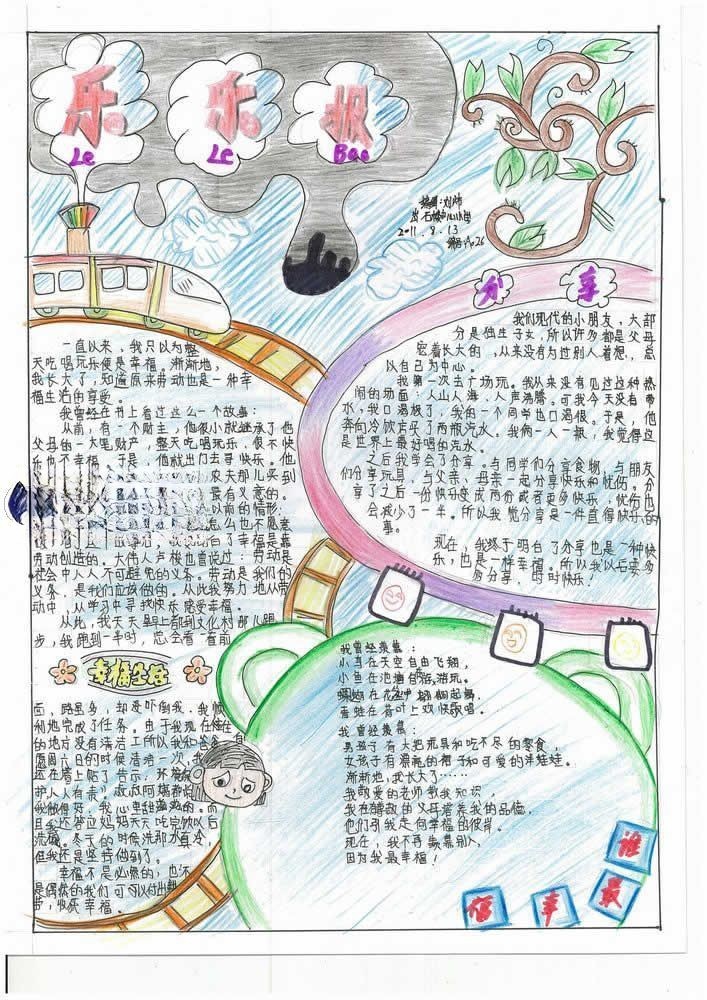 乐乐报
Le Le Bao
2011.8.13
分享
我们现代的小朋友,大部
分是独生子女,所以许多都是父母
宠着长大的,从来没有为过别人着想,总
以自己为中心。
我第一次去广场玩。我从来没有见过这种热
闹的场面:人山人海、人声沸腾。可我今天没有带
水,我口渴极了,我的一个同学也口渴很。于是,他
奔向冷饮店买了两瓶汽水。我俩一人一瓶,我觉得这
是世界上最好喝的汽水。
之后我学会了分享。与同学们分享食物,与朋友
们分享玩具,与父亲、母亲一起分享快乐和忧伤。分
享了之后一份快乐变成两份或者更多快乐,忧伤也
会减少了一半。所以我觉分享是一件值得快乐的
事。
现在,我终于明白了分享也是一种快
乐,也是一样幸福。所以我以后要多
多分享,时时快乐!
一直以来,我只以为整
天吃喝玩乐便是幸福。渐渐地,
我长大了,知道原来劳动也是一种幸
福生活的享受。
我曾经在书上看过这么一个故事:
从前,有一个财主,他很小就继承了他
父母的一大笔财产,整天吃喝玩乐,很不快
乐也不幸福。于是,他就出门去寻快乐。他
农夫那儿买到
最有义意的。
以前的情形:
怎么也不愿意
明白了幸福是靠
劳动创造的。大伟人卢梭也曾说过:劳动是
社会中人人不可避免的义务。劳动是我们的
义务,是我们应该做的。从此我努力地从劳
动中,从学习中寻找快乐感受幸福。
从此,我天天早上都到文化村那儿跑
步,我跑到一半时,总会看一看前
幸福生活
面,路虽多,却没吓倒我,我顺
利地完成了任务。由于我现在住
的地方没有清洁工所以我和爸爸
愿周六日的时候清培一次,我
还在墙上贴了告示:环境
护人人有责!叔叔阿姨都
我做得好,我心里甜滋滋的。而
且我还答应妈妈天天吃完饭以后
洗碗。冬天的时候洗那水真冷,
但我还是坚持做到了。
幸福不是必然的,也不
是偶然的我们可以付出勤
劳,收获幸福。
我曾经羡慕:
小鸟在天空自由飞翔,
小鱼在池塘自游消玩。
蝴蝶在花丛中翩翩起舞,
青蛙在荷叶上欢快歌唱。
我曾经羡慕:
男孩子有大把玩具和吃不尽的零食,
女孩子有漂亮的裙子和可爱的洋娃娃。
渐渐地,我长大了……
我敬爱的老师教我知识,
我在精致的父母培养我的品德,
他们引我走向幸福的彼岸。
现在,我不再羡慕别人,
因为我最幸福!
谁
最
幸
福